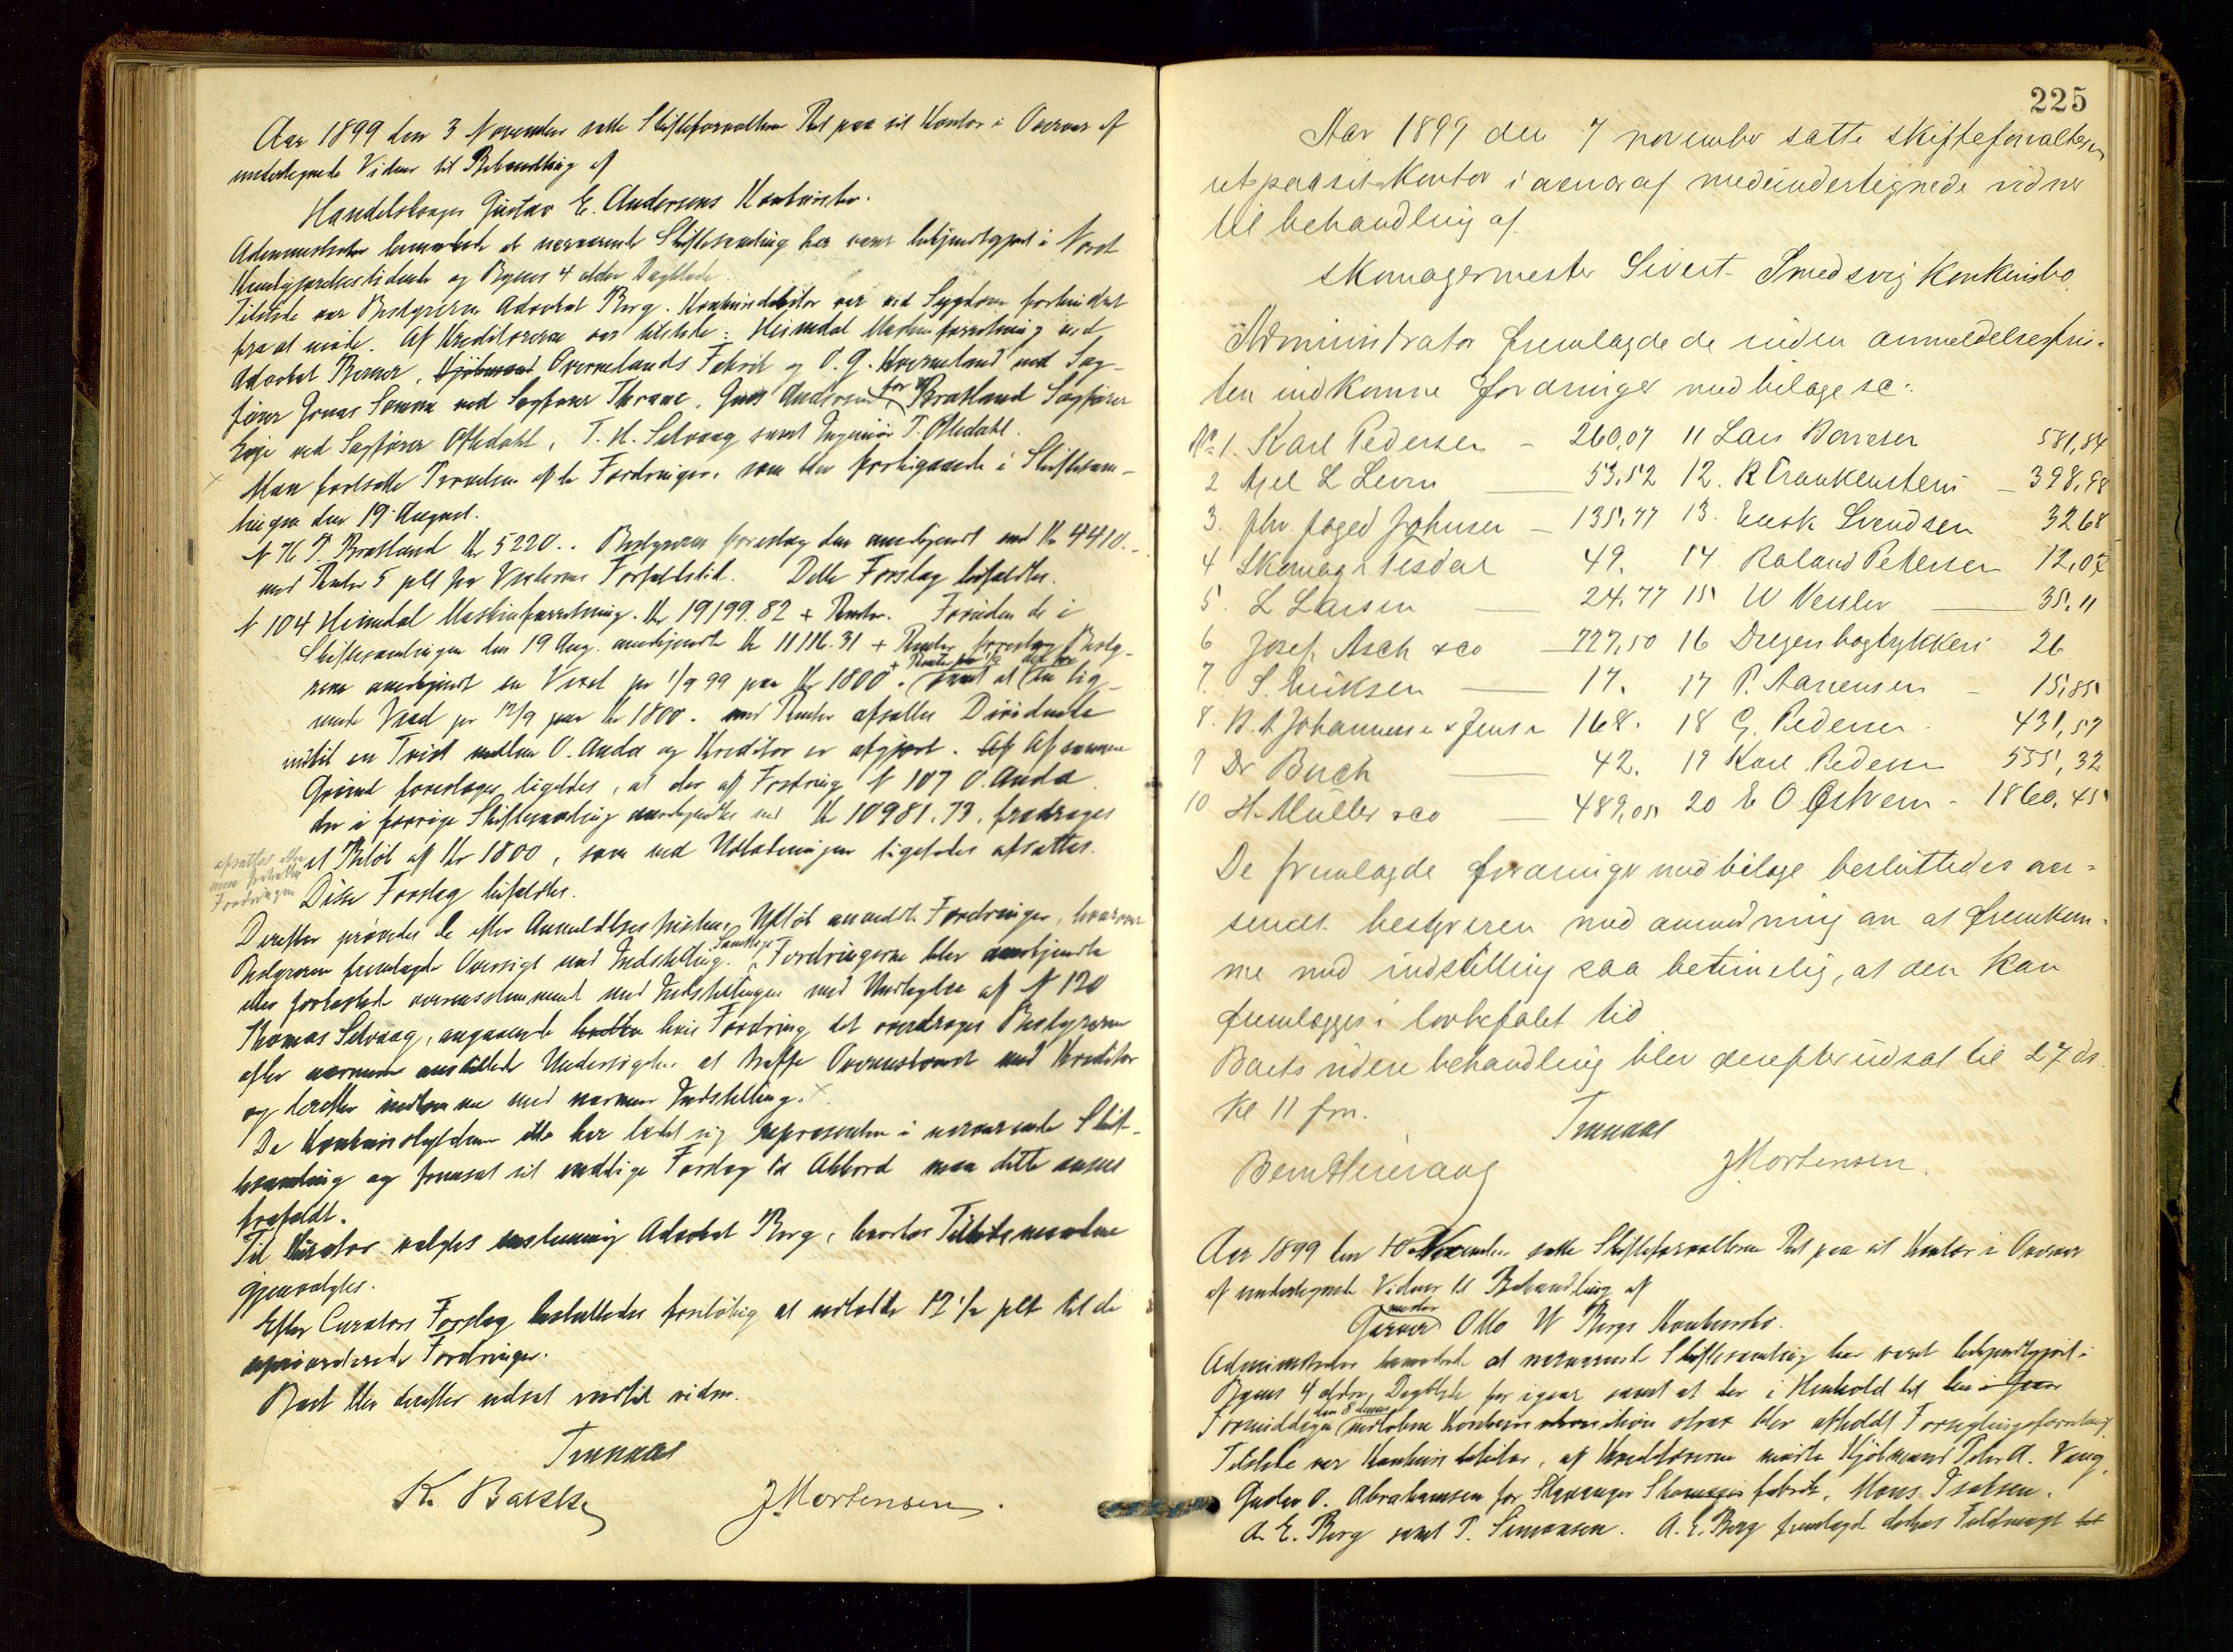 Aar 1899 den 3 November satte Skifteforvalteren Ret paa sit Kontor i Overvær af
undertegnede Vidner til Behandling af
Handelsborger Gustav E. Andersens Konkursbo.
Administrator bemærkede at nærværende Skiftesamling har været bekjendtgjort i Norsk
Kundgjørelsestidende og Byens 4 ældre Dagblade.
Tilstede var Bestyreren Advokat Berg. Konkursdebitor var ved Sygdom forhindret
fra at møde. Af Kreditorerne var tilstede: Heimdal Maskinforretning ved
Advokat Berner, Kjøbmand Overnelands Fabrik og O. G. Kverneland ved Sag-
fører Jonas Sømme ved Sagfører Thrane, Gust Andersen for P. Bratland Sagfører
Eeje ved Sagfører Oftedahl, T. H. Selvaag samt Ingeniør T. Oftedahl.
Man fortsatte Prøvelsen af de Fordringer, som blev forbigaaede i Skiftesam-
lingen den 19 August.
N 76 P. Bratland Kr 5220.. Bestyreren foreslog den anerkjendt med Kr 4410.-
med Renter 5 pCt fra Vexlernes Forfaldstid. Dette Forslag bifaldtes.
N 104 Heimdal Maskinforretning. Kr 19199.82 + Renter. Foruden de i
Skiftesamlingen den 19 Aug. anerkjendte Kr 11116.31 + Renter foreslog Besty-
reren anerkjendt en Vexel pr 1/9 99 paa Kr 1800. + Renter fra 1/9 samt at der for en lig-
nende Vexel pr 12/9 paa Kr 1800. med Renter afsættes Dividende
indtil en Tvist mellem O. Anda og Kreditor er afgjort. Af Af samme
Grund foreslages ligeledes, at der af Fordring N 107 O. Anda
der i forrige Skiftesamling anerkjendtes med Kr 10981.73, fradrages
et Beløb af Kr 1800, som ved Udlodningen ligeledes afsættes.
afsættes
Fordringen
Disse Forslag bifaldtes.
Derefter prøvedes de efter Anmeldelsesfristens Udløb anmeldte Fordringer, hvorover
Bestyreren fremlagde Oversigt med Indstilling. Samtlige Fordringerne blev anerkjendte
eller forkastede overensstemmende med Indstillingen med Undtagelse af N 120
Thomas Selvaag, angaaende hvilken hvis Fordring det overdroges Bestyreren
efter nærmere anstillede Undersøgelser at træffe Overenskomst med Kreditor
og derefter indkomme med nærmere Indstilling. ×
Da Konkursskyldneren ikke har ladet sig repræsentere i nærværende Skif-
tesamling og fremsat sit endelige Forslag til Akkord maa dette ansees
frafaldt.
Til Kurator valgtes enstemmig Advokat Berg, hvorhos Tillidsmændene
gjenvalgtes.
Efter Curators Forslag besluttedes foreløbig at udlodde 12 1/2 pCt til de
upriviligerede Fordringer.
Boet blev derefter udsat indtil videre.
Trennaas
K. Bakke
J. Mortensen.
225
Aar 1899 den 7 november satte skifteforvalteren
ret paa sit Kontor i overvær af medundertegnede vidner
til behandling af
skomagermester Sivert Smedsvig Konkursbo.
Administrator fremlagde de inden anmeldelsesfri-
sten indkomne fordringer med bilage sc:
No 1. Karl Pedersen - 260,07 11 Lars Børresen 581,84
2 Axel L Levin — 53,52 12. R Frankenstein - 398,98
3. Foged Johnsen - 135,77 13. Enok Svendsen 32 68
4 Skomag Tesdal 49. 14. Roland Petersen 12,07
5. L Larsen — 24.77 15 W Wessler — 35,11
6 Josef Asch & co — 727,50 16 Dreyers bogtrykkeri 26
7. S. Eriksen — 17. 17 P. Aanensen - 15,85
8. Johannesen & Jensen 168. 18 G. Pedersen. 431,57
9 Dr Buch — 42. 19 Karl Pedersen 555,32
10 H. Müller & co — 489,05 20 E O Østrem - 1860,45
De fremlagde fordringer med bilage besluttedes over-
sendt bestyreren med anmodning om at fremkom-
me med indstilling saa betimelig, at den kan
fremlægges i lovbefalet tid
Boets videre behandling blev derefter udsat til 27 ds.
Kl 11 fm.
Trennaas
J. Mortensen.
Aar 1899 den 10 November satte Skifteforvalteren Ret paa sit Kontor i Overvær
af undertegnede Vidner til Behandling af
Garvermester Otto W Bergs Konkursbo.
Administrator bemærkede at nærværende Skiftesamling har været bekjendtgjort i
Byens 4 ældre Dagblade for igaar samt at der i Henhold til den i gaar
Formiddag den 8 dennes indkomne Konkurs strax blev afholdt Forseglingsforretning.
Tilstede var Konkursdebitor, af Kreditorerne mødte Kjøbmand Peder A. Vaag,
Gustav O. Abrahamsen for Stavanger Skomagerfabrik, Mons Isaksen,
A. E. Berg samt P. Simonsen. A. E. Berg fremlagde dennes Fuldmagt